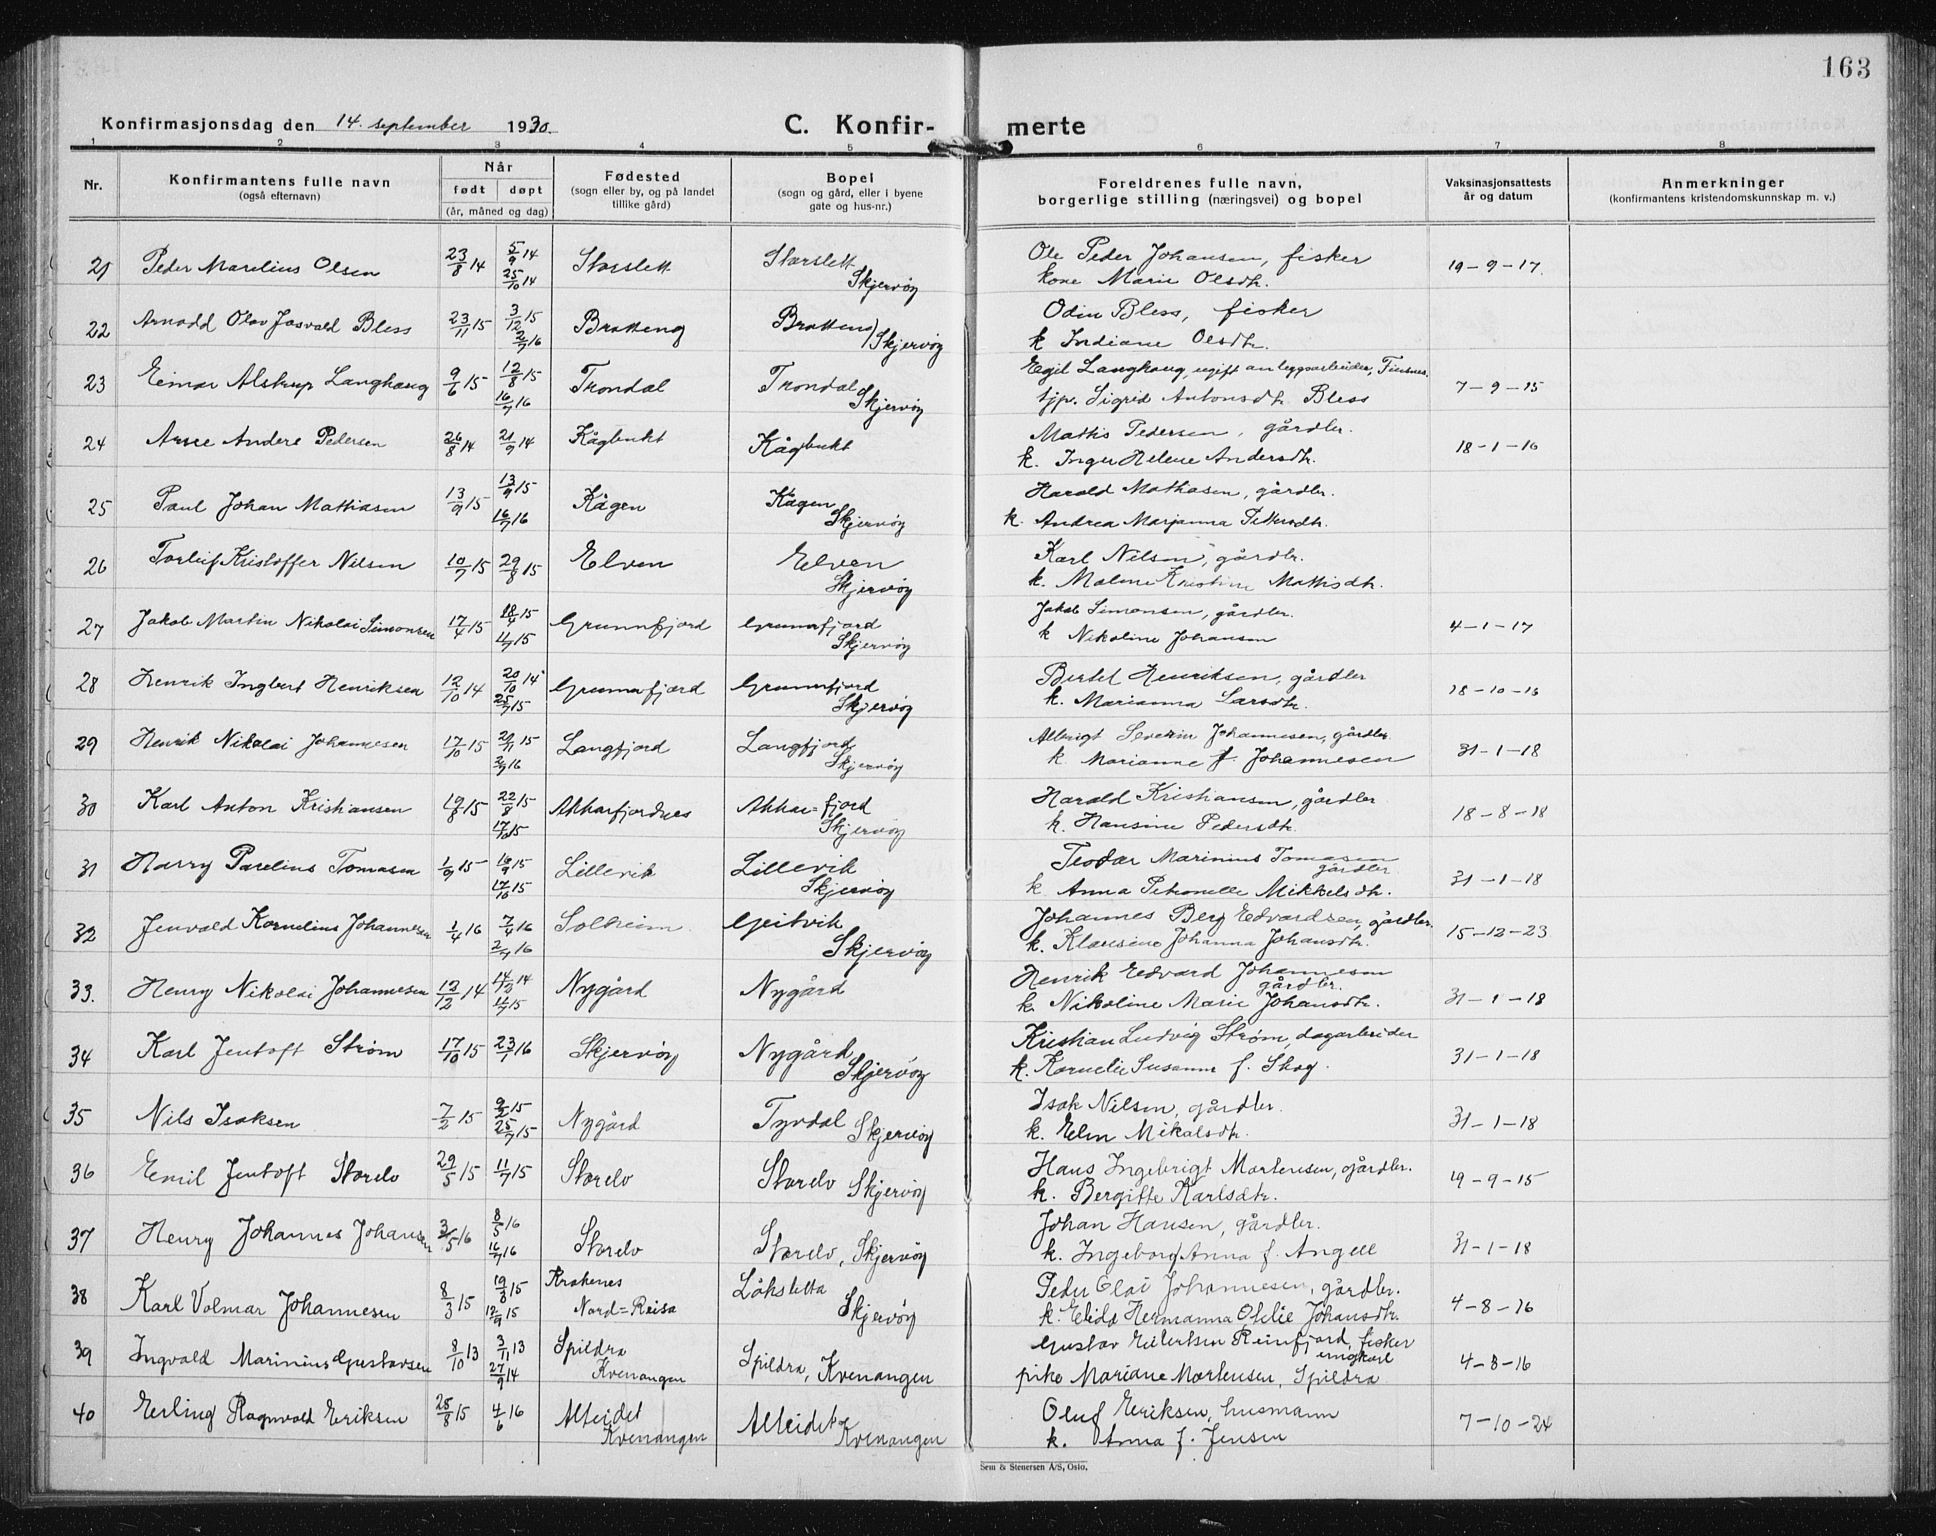 163
Konfirmasjonsdag den 14. september 1930.
C. Konfir-
merte
1 2 3 4 5 6 7 8
Nr.
Konfirmantens fulle navn
(også efternavn)
Når
født døpt
(år, måned og dag)
Fødested
(sogn eller by, og på landet
tillike gård)
Bopel
(sogn og gård, eller i byene
gate og hus-nr.)
Foreldrenes fulle navn,
borgerlige stilling (næringsvei) og bopel
Vaksinasjonsattests
år og datum
Anmerkninger
(konfirmantens kristendomskunnskap m. v.)
21 Peder Marelius Olsen 23/8 14 5/9 14 25/10 14 Storslett Storslett Skjervöy Ole Peder Johansen, fisker kone Marie Olsdtr. 19-9-17.
22 Arnodd Olav Josvald Bless 23/11 15 3/12 15 2/7 16 Bratteng Bratteng Skjervöy Odin Bless, fisker k Indiane Olsdtr.
23 Einar Alstrup Langhaug 9/6 15 12/8 15 16/7 16 Trondal Trondal Skjervöy Egil Langhaug, ugift anleggsarbeider, Finsnes. tjp. Sigrid Antonsdtr Bless 7-9-15
24 Arne Andere Pedersen 26/8 14 21/9 14 Kågbukt Kågbukt Mathis Pedersen, gårdbr. k. Inger Helene Andersdtr. 18-1-16
25 Paul Johan Mathiasen 13/9 15 13/9 15 16/7 16 Kågen Kågen Skjervöy Harald Mathiasen, gårdbr. k. Andrea Marjanna Pettersdtr.
26 Torleif Kristoffer Nilsen 10/7 15 29/8 15 Elven Elven Skjervöy Karl Nilsen, gårdbr. k. Malene Kristine Mathisdtr.
27 Jakob Martin Nikolai Simonsen 17/4 15 18/4 15 11/7 15 Grunnfjord Grunnfjord Skjervöy Jakob Simonsen, gårdbr. k Nikoline Johansen 4-1-17
28 Henrik Ingbert Henriksen 12/10 14 20/10 14 25/7 15 Grunnfjord Grunnfjord Skjervöy Bertel Henriksen, gårdbr k. Marianna Larsdtr. 18-10-16
29 Henrik Nikolai Johannesen 17/10 15 21/11 15 2/9 16 Langfjord Langfjord Skjervöy Albrigt Severin Johannesen, gårdbr k. Marianne f. Johannesen 31-1-18
30 Karl Anton Kristiansen 19/8 15 22/8 15 17/10 15 Akkarfjordnes Akkar=fjord Skjervöy Harald Kristiansen, gårdbr k. Hansine Pedersdtr. 18-8-18
31 Harry Parelius Tomasen 1/9 15 16/9 15 17/10 15 Lillevik Lillevik Skjervöy Teodor Marinius Tomasen gårdbr k Anna Petronelle Mikkelsdtr. 31-1-18
32 Jenvald Kornelius Johannesen 1/4 16 7/4 16 2/7 16 Solheim. Geitvik Skjervöy Johannes Berg Edvardsen, gårdbr. k. Klausine Johanna Johansdtr. 15-12-23
33. Henry Nikolai Johannesen 12/12 14 14/12 14 11/7 15 Nygård Nygård Henrik Edvard Johannesen gårdbr. k. Nikoline Marie Johansdtr. 31-1-18
34 Karl Jentoft Strøm 17/10 15 23/7 16 Skjervöy Nygård Skjervöy Kristian Ludvig Strøm, dagarbeider k. Kornelie Susanne f. Skog. 31-1-18
35 Nils Isaksen 7/2 15 9/2 15 25/7 15 Nygård Tyvdal Skjervöy Isak Nilsen, gårdbr. k. Elen Mikalsdtr. 31-1-18
36 Emil Jentoft Storelv 29/5 15 11/7 15 Storelv Storelv Skjervöy Hans Ingebrigt Mortensen, gårdbr. k. Bergitte Karlsdtr. 19-9-15
37 Henry Johannes Johansen 3/5 16 8/5 16 16/7 16 Storelv Storelv, Skjervöy Johan Hansen, gårdbr. k. Ingeborg Anna f. Angell 31-1-18
38 Karl Volmar Johannesen 8/3 15 19/8 15 12/9 15 Krakenes Nord=Reisa Lökslette Skjervöy Peder Olai Johannesen, gårdbr. k. Elida Hermanna Otelie Johansdtr. 4-8-16
39 Ingvald Marinius Gustavsen 8/10 13 3/11 13 27/9 14 Spildra Kvenangen Spildra, Kvenangen Gustav Eilertsen Reinfjord, fisker ungkarl pike Mariane Mortensen, Spildra 4-8-16
40 Erling Ragnvald Eriksen 25/8 15 4/6 16 Alteidet Kvenangen Alteidet Kvenangen Oluf Eriksen, husmann k. Anna f. Jensen 7-10-24
Sem & Stenersen A/S, Oslo.